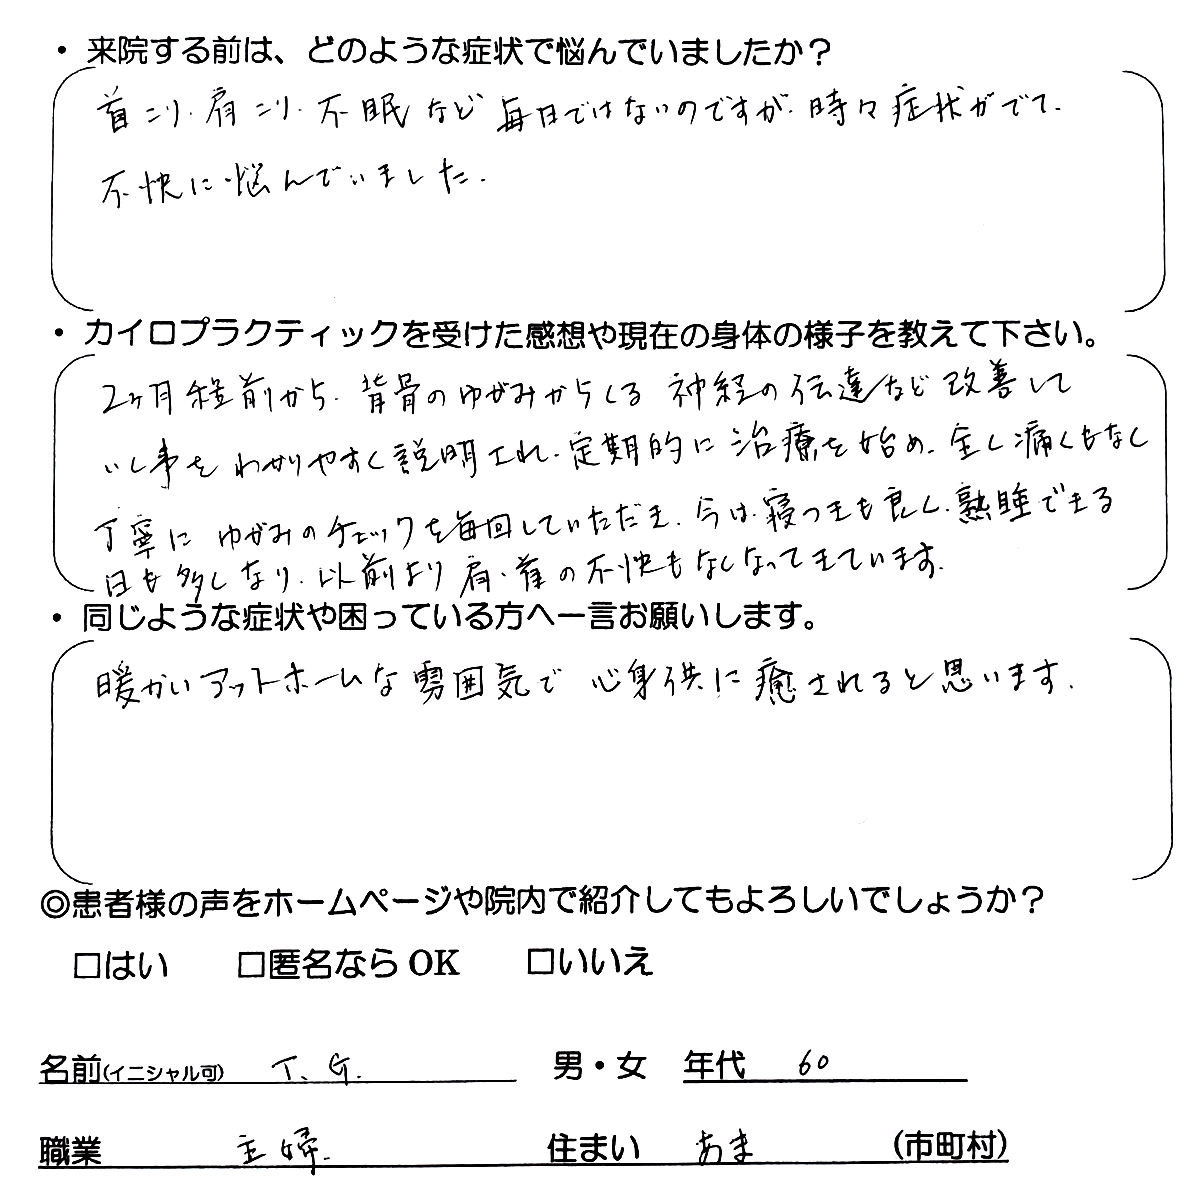 ・来院する前は、どのような症状で悩んでいましたか？
首こり.肩こり.不眠など 毎日ではないのですが.時々症状がでて.
不快に悩んでいました.
・カイロプラクティックを受けた感想や現在の身体の様子を教えて下さい。
2ヶ月程前から.背骨のゆがみからくる 神経の伝達など改善して
いく事を わかりやすく説明され.定期的に治療を始め.全く痛くもなく
丁寧に ゆがみのチェックを毎回していただき.今は.寝つきも良く.熟睡できる
日も多くなり.以前より肩.首の不快もなくなってきています.
・同じような症状や困っている方へ一言お願いします。
暖かいアットホームな雰囲気で 心身供に癒されると思います.
◎患者様の声をホームページや院内で紹介してもよろしいでしょうか？
□はい □匿名ならOK □いいえ
名前(イニシャル可) T.G. 男・女 年代 60
職業 主婦. 住まい あま (市町村)